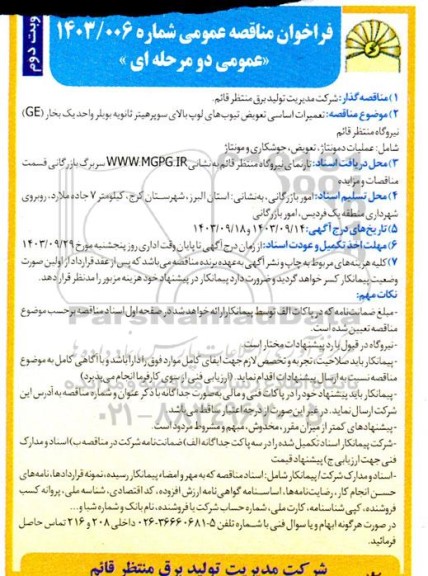 نوبت دوم
فراخوان مناقصه عمومی شماره ۱۴۰۳/۰۰۶
«عمومی دو مرحله ای»
۱) مناقصه گذار: شرکت مدیریت تولید برق منتظر قائم.
۲) موضوع مناقصه: تعمیرات اساسی تعویض تیوب‌های لوپ بالای سوپرهیتر ثانویه بویلر واحد یک بخار (GE)
نیروگاه منتظر قائم
شامل: عملیات دمونتاژ، تعویض، جوشکاری و مونتاژ
۳) محل دریافت اسناد: تارنمای نیروگاه منتظر قائم به نشانی WWW.MGPG.IR سربرگ بازرگانی قسمت
مناقصات و مزایده
۴) محل تسلیم اسناد: امور بازرگانی، به‌نشانی: استان البرز، شهرستان کرج، کیلومتر ۷ جاده ملارد، روبروی
شهرداری منطقه یک فردیس، امور بازرگانی
۵) تاریخ‌های درج آگهی: ۱۴۰۳/۰۹/۱۴ و ۱۴۰۳/۰۹/۱۸
۶) مهلت اخذ تکمیل و عودت اسناد: از زمان درج آگهی تا پایان وقت اداری روز پنجشنبه مورخ ۱۴۰۳/۰۹/۲۹
۷) کلیه هزینه‌های مربوط به چاپ و نشر آگهی به عهده برنده مناقصه می‌باشد که پس از عقد قرارداد از اولین صورت
وضعیت پیمانکار کسر خواهد گردید و ضرورت دارد پیمانکار در پیشنهاد خود هزینه مزبور را مدنظر قرار دهد.
نکات مهم:
- مبلغ ضمانت‌نامه که در پاکات الف توسط پیمانکار ارائه خواهد شد در صفحه اول اسناد مناقصه برحسب موضوع
مناقصه تعیین شده است.
- نیروگاه در قبول یا رد پیشنهادات مختار است.
- پیمانکار باید صلاحیت، تجربه و تخصص لازم جهت ایفای کامل موارد فوق را دارا باشد و با آگاهی کامل به موضوع
مناقصه نسبت به ارسال پیشنهادات اقدام نماید. (ارزیابی فنی از سوی کارفرما انجام می‌پذیرد)
- پیمانکار باید پیشنهاد خود را در پاکات فنی و مالی به‌صورت جداگانه با ذکر عنوان و شماره مناقصه به آدرس این
شرکت ارسال نماید. در غیر این صورت از درجه اعتبار ساقط می‌باشد.
- پیشنهادهای کمتر از میزان مقرر، مخدوش، مبهم و مشروط مردود است.
- شرکت پیمانکار اسناد تکمیل شده را در سه پاکت جداگانه الف) ضمانت‌نامه شرکت در مناقصه ب) اسناد و مدارک
فنی جهت ارزیابی ج) پیشنهاد قیمت
- اسناد و مدارک شرکت / پیمانکار شامل: اسناد مناقصه که به مهر و امضاء پیمانکار رسیده، نمونه قراردادها، نامه‌های
حسن انجام کار، رضایت‌نامه‌ها، اساسنامه گواهی نامه ارزش افزوده، کد اقتصادی، شناسه ملی، پروانه کسب
فروشنده، کپی شناسنامه، کارت ملی، شماره حساب شرکت یا فروشنده، نام بانک و شماره شبا و...
در صورت هرگونه ابهام و یا سوال فنی با شماره تلفن ۵-۰۲۶-۳۶۶۶۰۶۸۱ داخلی ۲۰۸ و ۲۱۶ تماس حاصل
فرمائید.
شرکت مدیریت تولید برق منتظر قائم